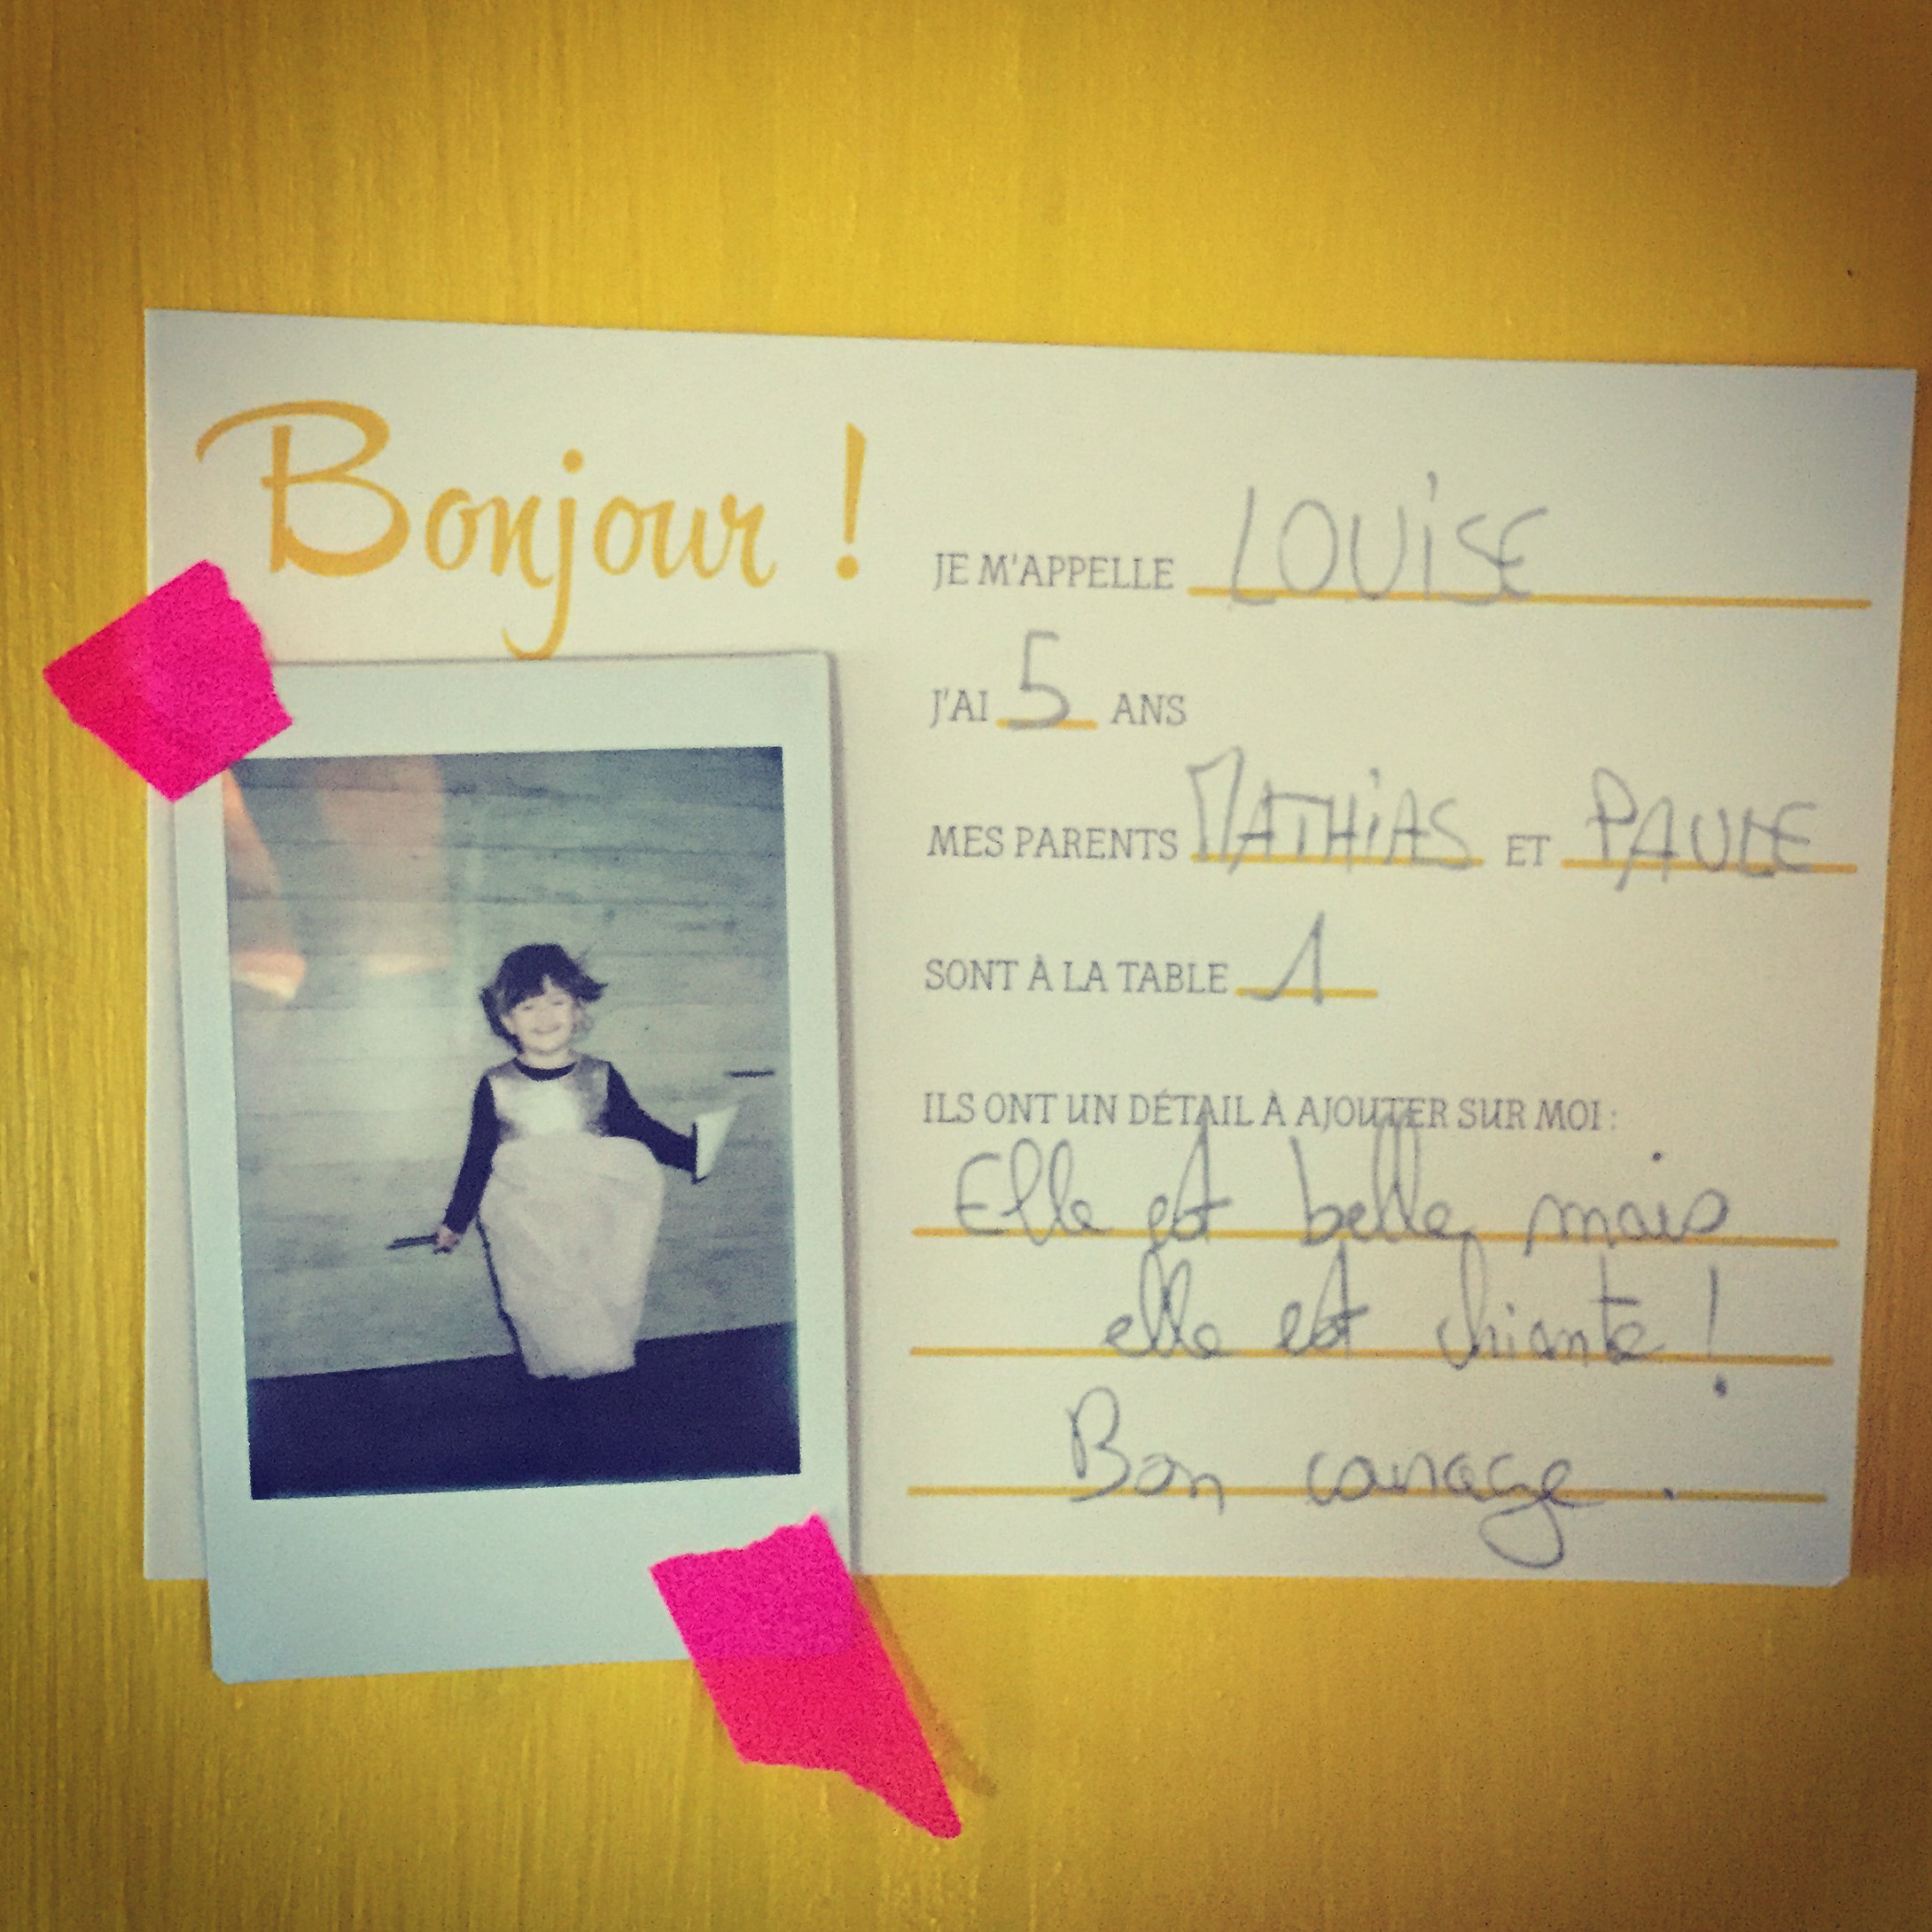 Bonjour !
JE M'APPELLE LOUISE
J'AI 5 ANS
MES PARENTS MATHIAS ET PAULE
SONT À LA TABLE 1
ILS ONT UN DÉTAIL À AJOUTER SUR MOI :
Elle est belle mais
elle est chiante !
Bon courage.